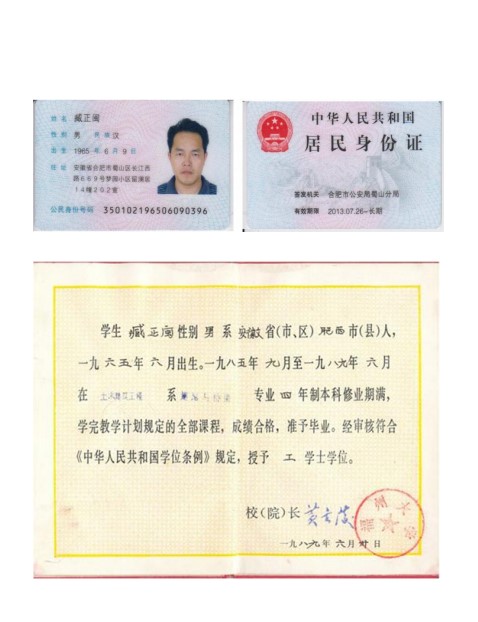 姓名 臧正闽
性别 男 民族 汉
出生 1965 年 6 月 9 日
住址 安徽省合肥市蜀山区长江西
路669号梦园小区留澜苑
14幢202室
公民身份号码 350102196506090396
中华人民共和国
居民身份证
签发机关 合肥市公安局蜀山分局
有效期限 2013.07.26-长期
学生 臧正闽 性别 男 系 安徽 省(市、区) 肥西 市(县)人,
一九六五年 六 月出生。一九八五年 九 月至一九八九年 六 月
在 土木建筑工程 系 专业 四 年制本科修业期满,
学完教学计划规定的全部课程,成绩合格,准予毕业。经审核符合
《中华人民共和国学位条例》规定,授予 工 学士学位。
校(院)长
一九八九年 六 月 日
福州大学